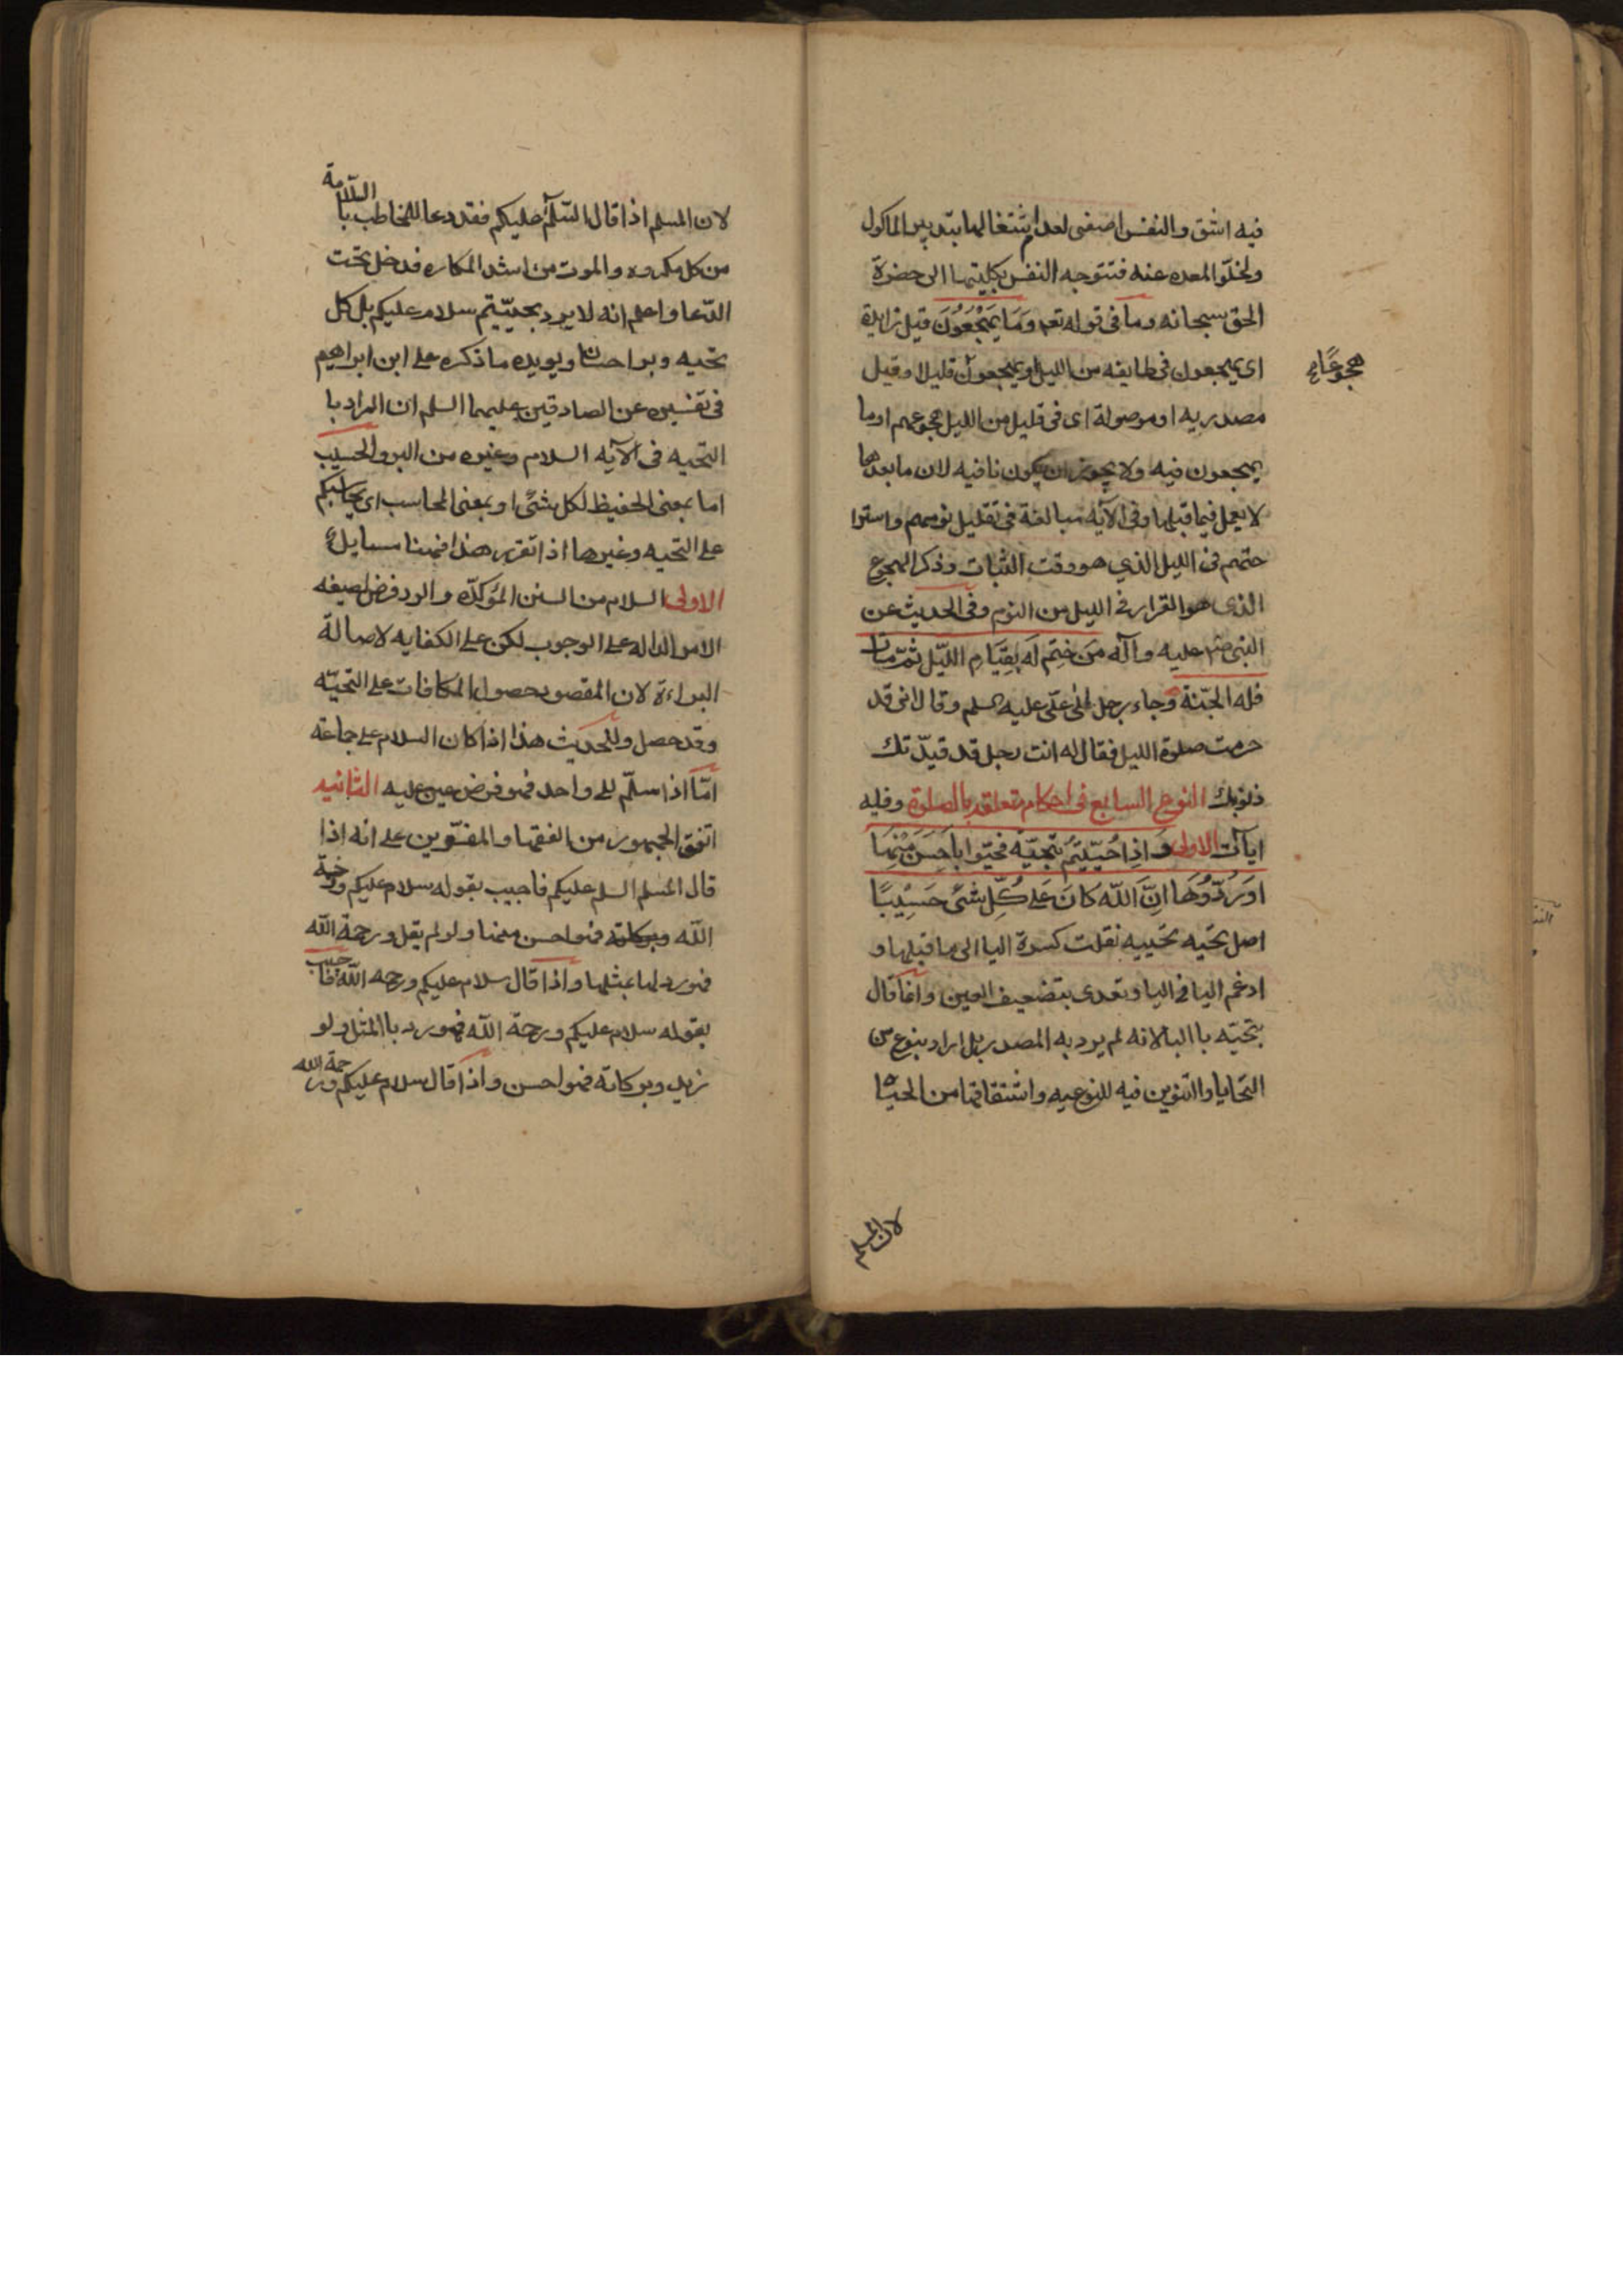 فيه اشق والنفس اصفى لعدم اشتغالها بتدبير الماكول
ولخلو المعده عنه فتتوجه النفس بكليتها الى حضرة
الحق سبحانه وما فى قوله تعم وَمَا يَهْجَعُونَ قيل زايدة
اى يهجعون فى طايفه من الليل او يهجعون قليلا وقيل
هجوعًا
مصدريه او موصولة اى فى قليل من الليل هجوعهم او ما
يهجعون فيه ولا يجوز ان يكون نافيه لان ما بعدها
لا يعمل فيما قبلها وفى الآيه مبالغة فى تقليل نومهم واسترا
حتهم فى الليل الذي هو وقت الثبات وذكر الهجوع
الذى هو القرار فى الليل من النوم وفى الحديث عن
النبى صم عليه وآله مَن خُتِم لَه بِقِيَامِ اللّيل ثمّ مات
فله الجنّة وجاء رجل الى على عليه السلم وقال انى قد
حرمت صلوة الليل فقال له انت رجل قد قيدّتك
ذنوبك النوع السابع فى احكام تتعلق بالصلوة وفيه
ايات الاولى وَاذِا حُيّيتُم بتحِيّة فحَيّوا باَحسَنَ مِنهَا
اوَرُدّوُهَا انِّ اَللّه كانَ عَلى كُلِّ شىً حَسَيِبًا
اصل تحيه تحييه نقلت كسرة اليا الى ما قبلها و
ادغم اليا فى اليا وتعدى بتضعيف العين وانما قال
بتحيّه با البا لانه لم يرد به المصدر بل اراد بنوع من
التحايا والتنوين فيه للنوعيه واشتقاقها من الحياة
لان المسلم
لان المسلم اذا قال السّلم عليكم فقد دعا للمخاطب با
السّلامة
من كل مكروه والموت من اشد المكاره فدخل تحت
الدّعا واعلم انه لا يرد بحييّتم سلام عليكم بل كل
تحيه وبر احسان ويويده ما ذكره على ابن ابراهيم
فى تفسيره عن الصادقين عليهما السلم ان المراد با
التحيه فى الآيه السلام وغيره من البر والحسيب
اما بمعنى الحفيظ لكل شىً او بمعنى المحاسب اى يحاسبكم
على التحيه وغيرها اذا تقرر هذا فهنا مسايل
الاولى السلام من السنن المؤكدّه والرد فرض لصيغه
الامر الداله على الوجوب لكن على الكفايه لاصالة
البراءة لان المقصود حصول المكافات على التحيّه
وقد حصل وللحديث هذا اذا كان السلام على جماعة
امّا اذا سلّم على واحد فهو فرض عين عليه الثانيه
اتفق الجمهور من الفقها والمفسّرين على انه اذا
قال المسلم السلم عليكم فاجيب بقوله سلام عليكم ورحمة
اللّه وبركاته فهو احسن منها ولو لم يقل ورحمة اللّه
فهو رد لها بمثلها واذا قال سلام عليكم ورحمه اللّه فاجيب
بقوله سلام عليكم ورحمة اللّه فهو رد با المثل ولو
زيد وبركاته فهو احسن واذا قال سلام عليكم ورحمة الله